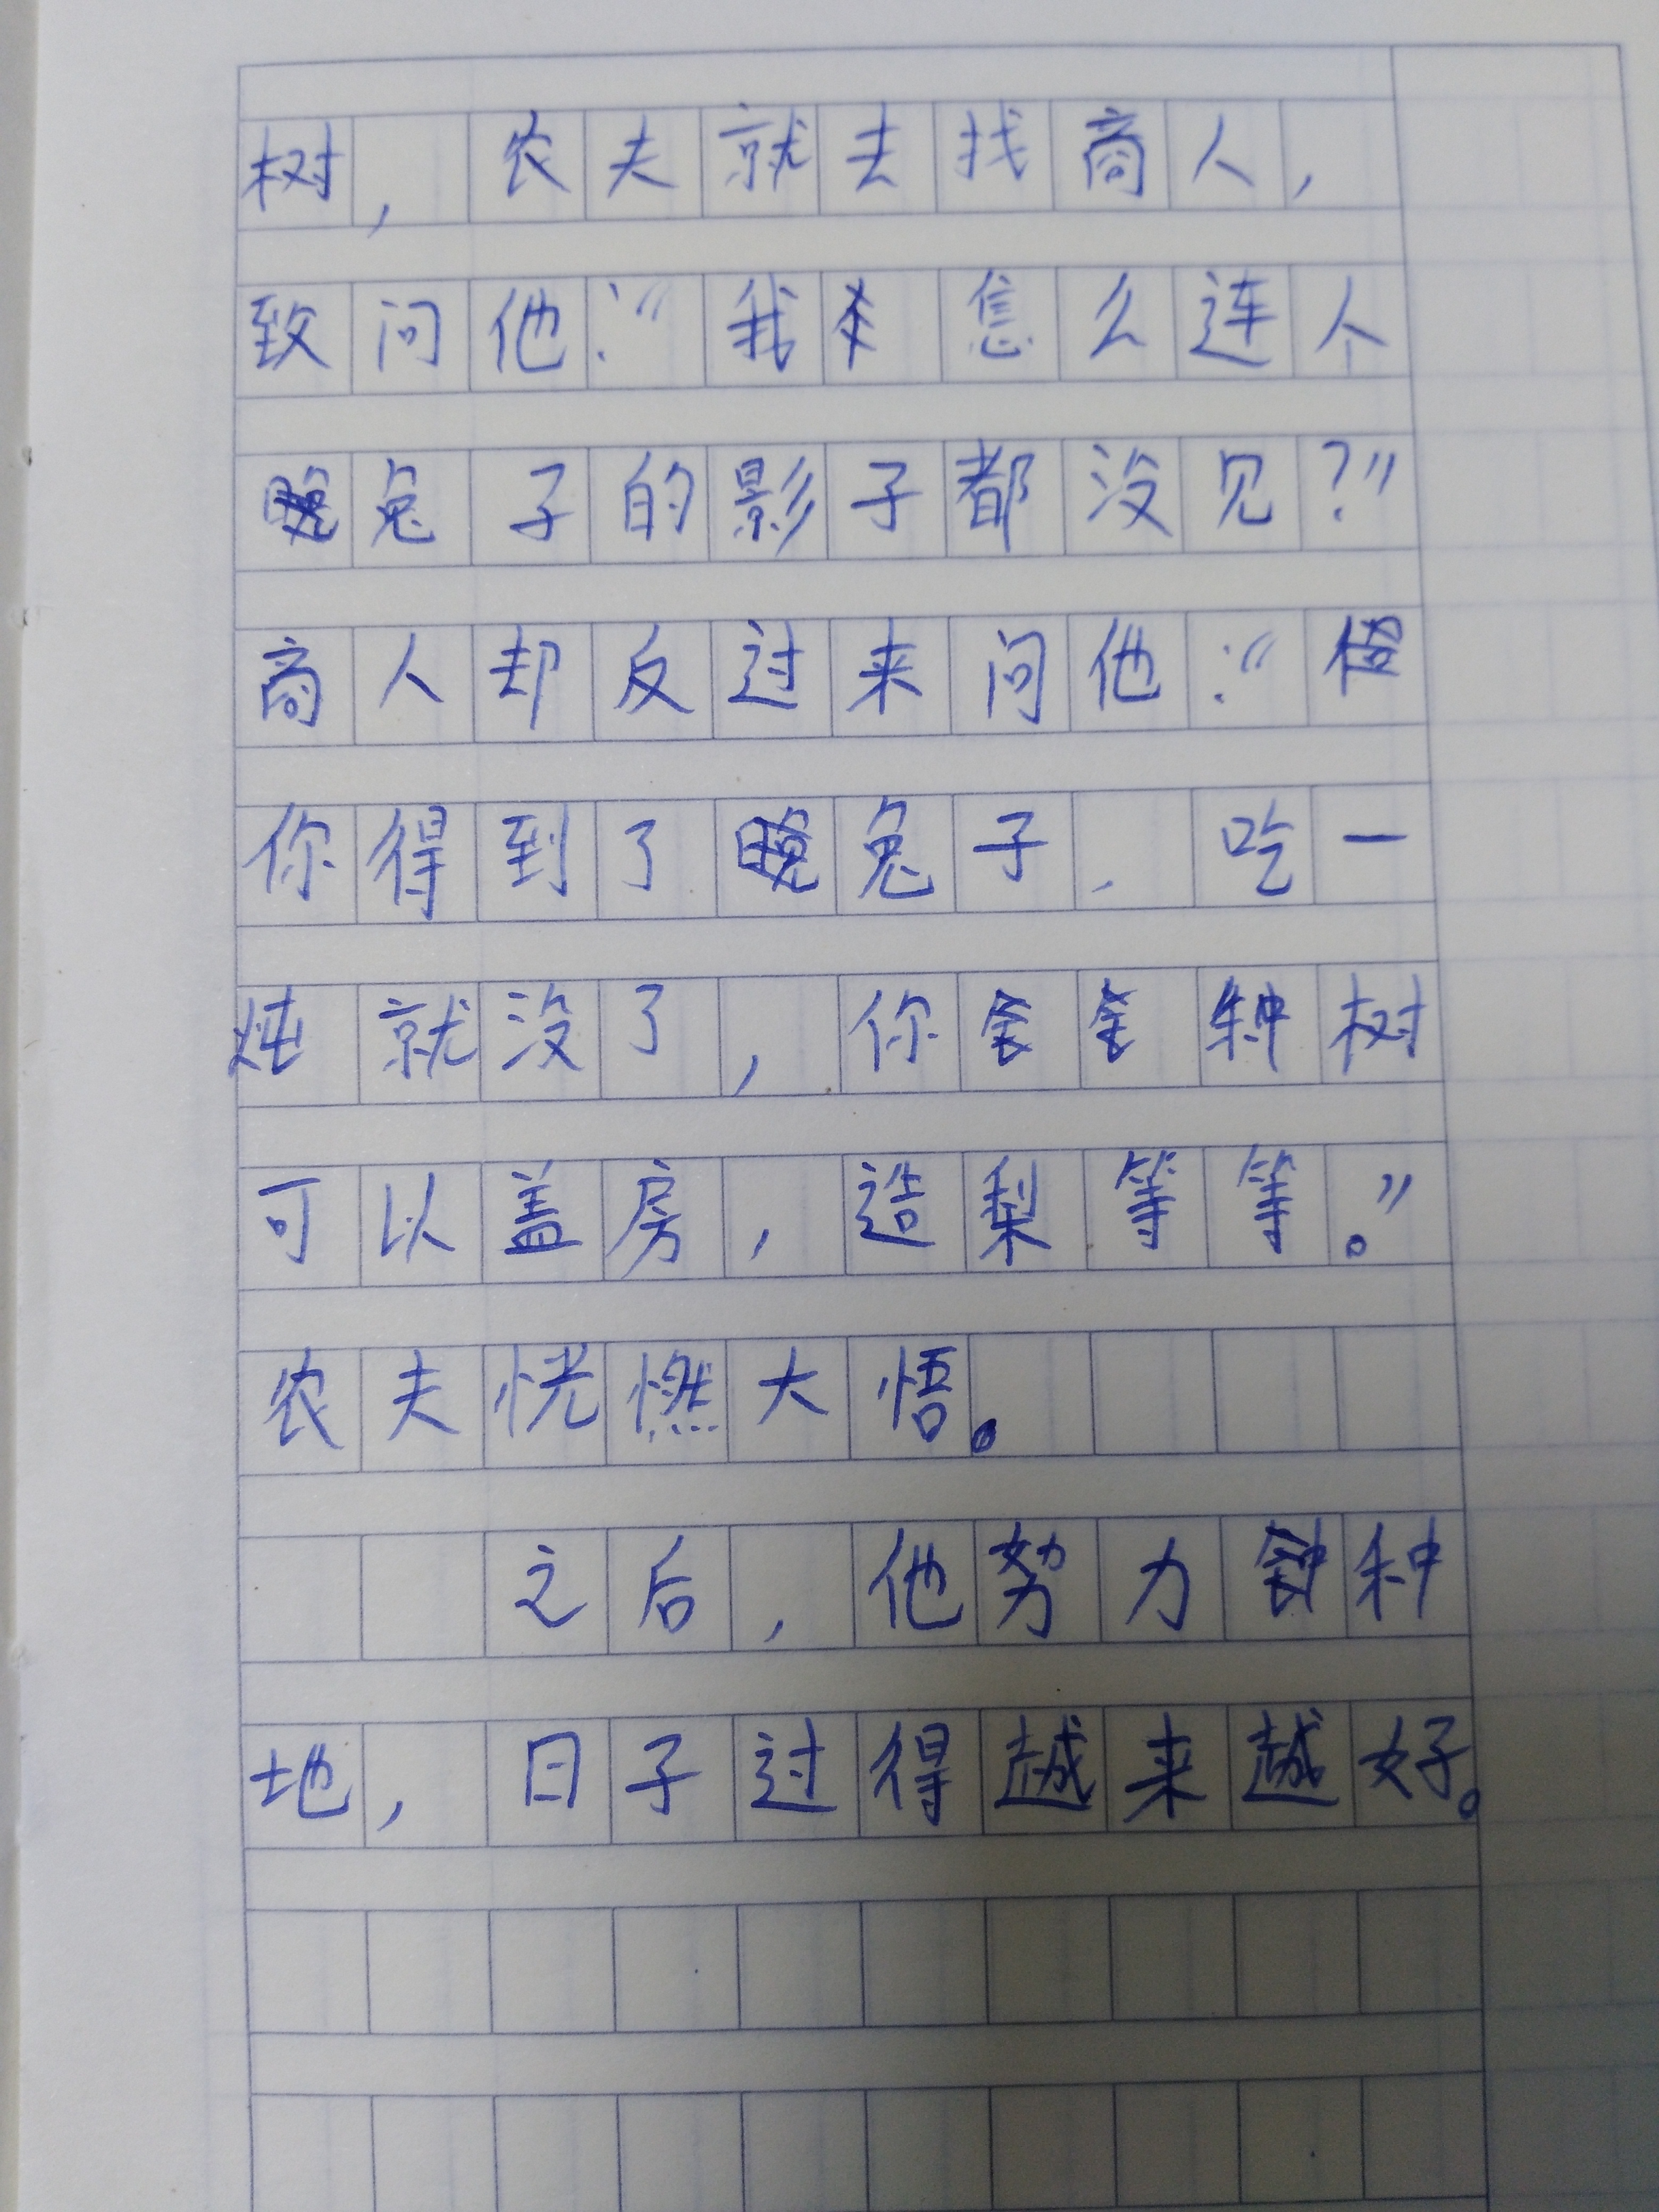 树，农夫就去找商人，
致问他：“我怎么连个
兔子的影子都没见？”
商人却反过来问他：“
你得到了兔子，吃一
炖就没了，你种树
可以盖房，造梨等等。”
农夫恍燃大悟。
之后，他努力种
地，日子过得越来越好。